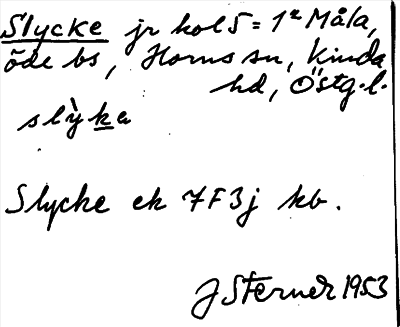 Slycke jr kol 5 = 1ª Måla,
öde bs, Horns sn, Kinda
hd, Östg.l.
slỳka
Slycke ek 7F3j kb.
J Sterner 1953